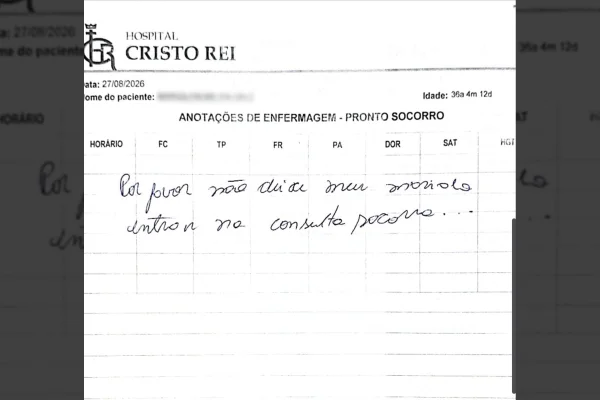 HOSPITAL
CRISTO REI
Data: 27/08/2026
Nome do paciente:
Idade: 36a 4m 12d
ANOTAÇÕES DE ENFERMAGEM - PRONTO SOCORRO
HORÁRIO FC TP FR PA DOR SAT HGT
Por favor não deixe meu marido
entrar na consulta socorro...